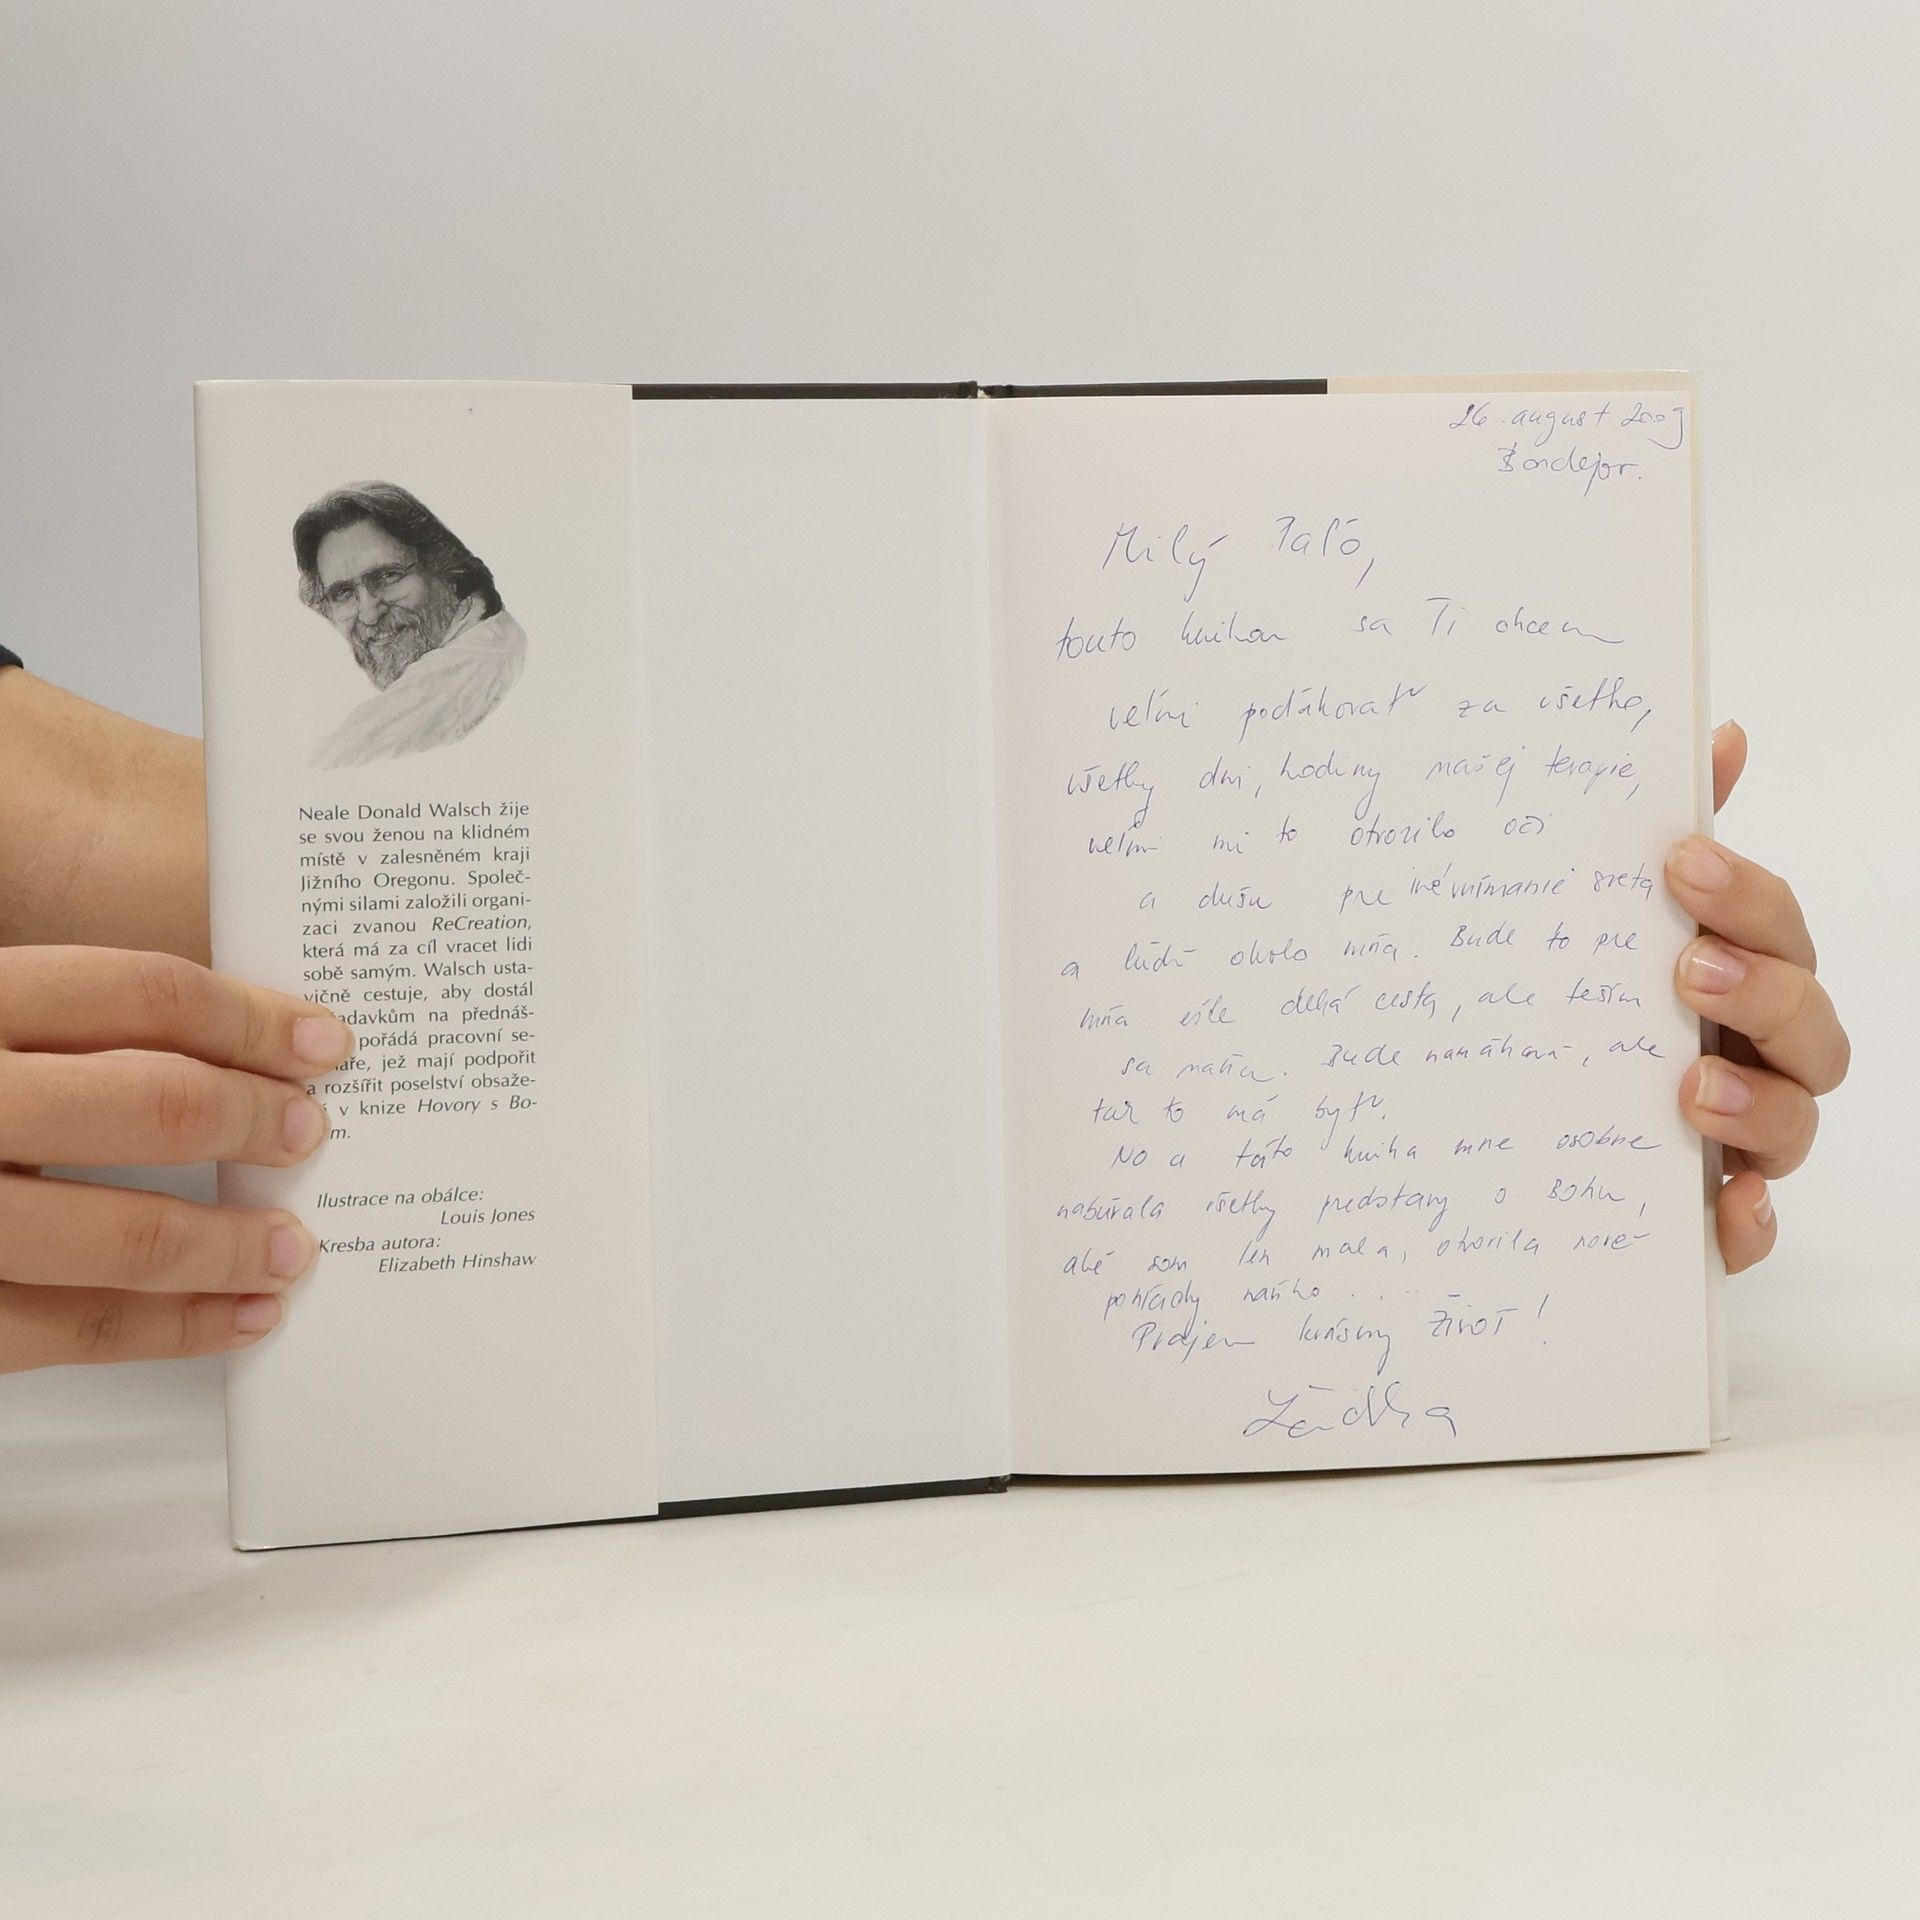 Neale Donald Walsch žije
se svou ženou na klidném
místě v zalesněném kraji
Jižního Oregonu. Společ-
nými silami založili organi-
zaci zvanou ReCreation,
která má za cíl vracet lidi
sobě samým. Walsch usta-
vičně cestuje, aby dostál
adavkům na přednáš-
pořádá pracovní se-
áře, jež mají podpořit
a rozšířit poselství obsaže-
v knize Hovory s Bo-
m.
Ilustrace na obálce:
Louis Jones
Kresba autora:
Elizabeth Hinshaw
26. august 2009
Milý Paľo,
touto knihou sa Ti chcem
veľmi poďakovať za všetko,
všetky dni, hodiny našej terapie,
veľmi mi to otvorilo oči
a dušu pre iné vnímanie sveta
a ľudí okolo mňa. Bude to pre
mňa ešte dlhá cesta, ale teším
sa na ňu. Bude namáhavá, ale
tak to má byť.
No a táto kniha mne osobne
nabúrala všetky predstavy o Bohu,
aké som len mala, otvorila nové
pohľady naňho ....
Prajem krásny život!